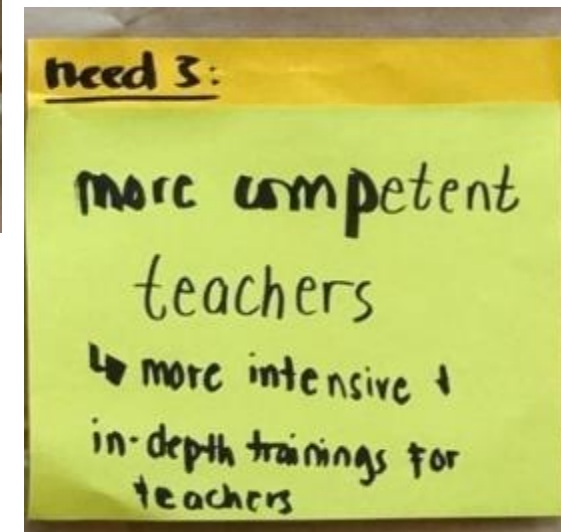 need 3:
more competent
teachers
↳ more intensive +
in-depth trainings for
teachers